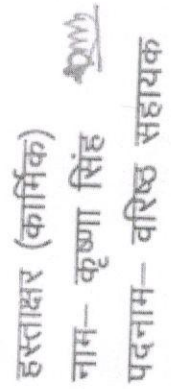 हस्ताक्षर (कार्मिक)
नाम– कृष्णा सिंह
पदनाम– वरिष्ठ सहायक